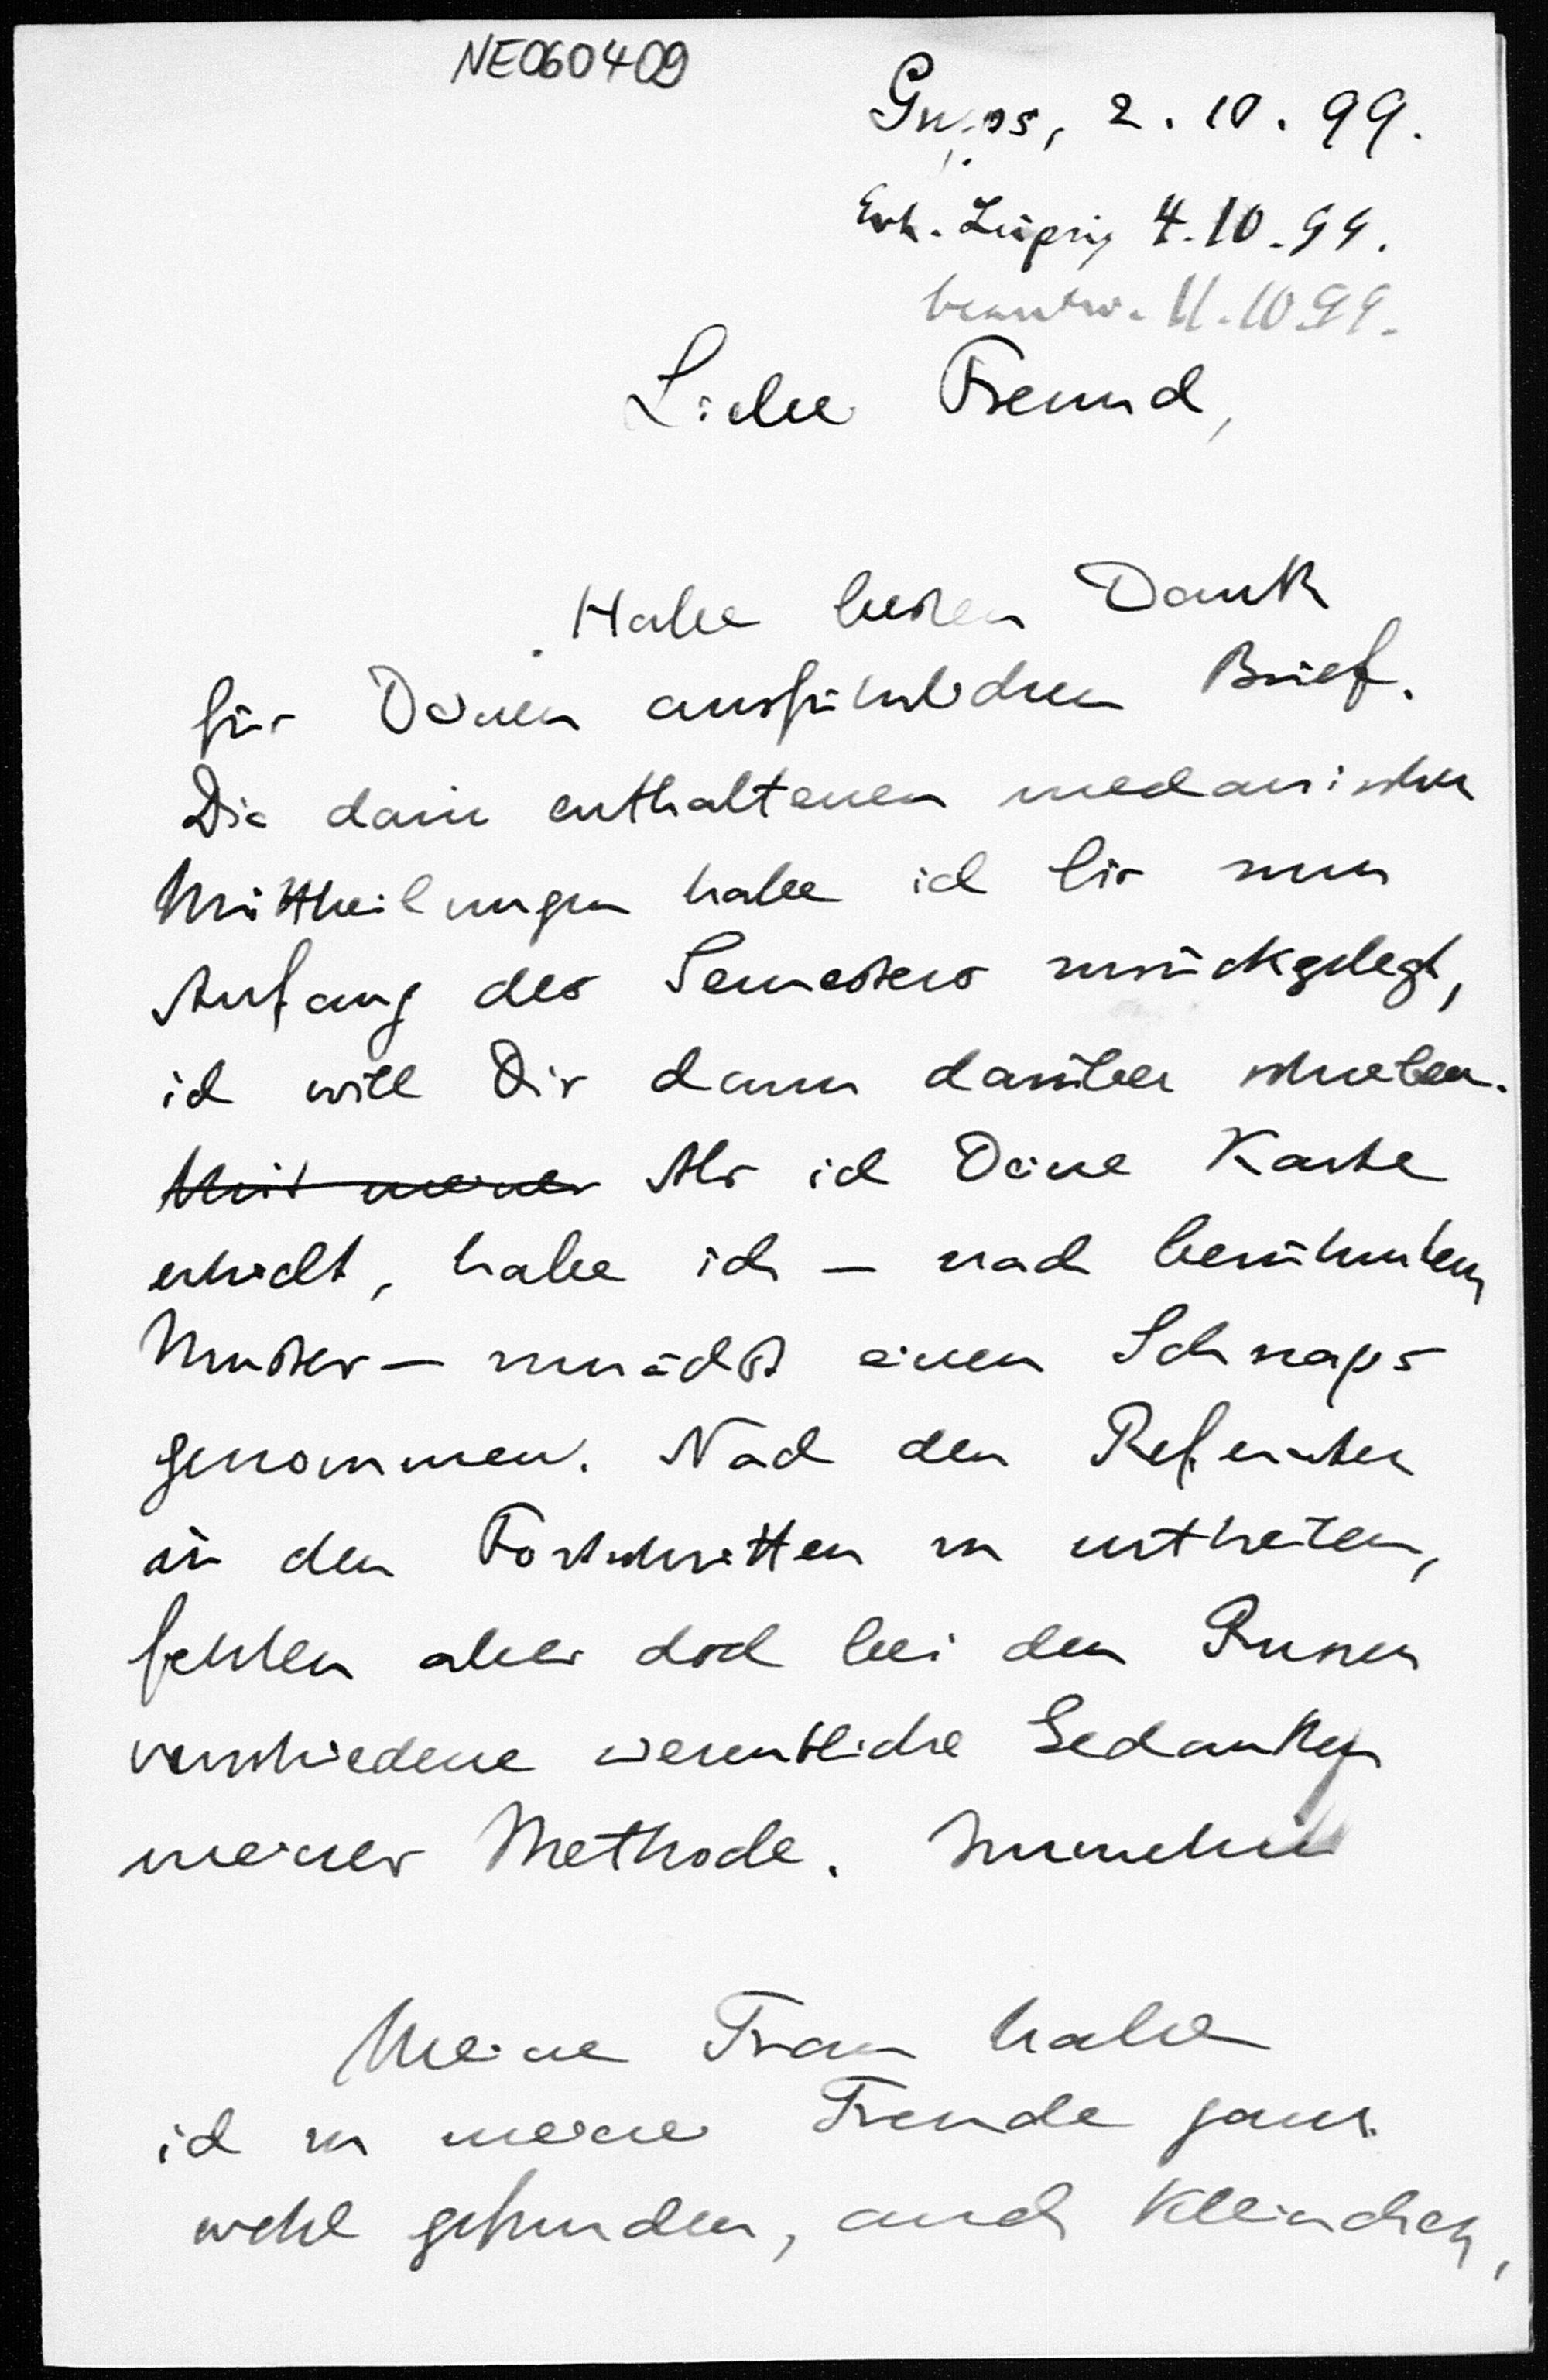 NE060409
Gnips, 2.10.99.
Erh. Leipzig 4.10.99.
beantw. 11.10.99.
Lieber Freund,
Habe besten Dank
für Deinen ausführlichen Brief.
Die darin enthaltenen mechanischen
Mittheilungen habe ich bis zum
Anfang des Semesters zurückgelegt,
ich will Dir dann darüber schreiben.
Mit meiner Als ich Deine Karte
erhielt, habe ich — nach berühmtem
Muster — zunächst einen Schnaps
genommen. Nach den Referaten
in den Fortschritten zu urtheilen,
fehlen aber doch bei den Russen
verschiedene wesentliche Gedanken
meiner Methode. Immerhin
Meine Frau habe
ich zu meiner Freude ganz
wohl gefunden, auch Kleinchen,